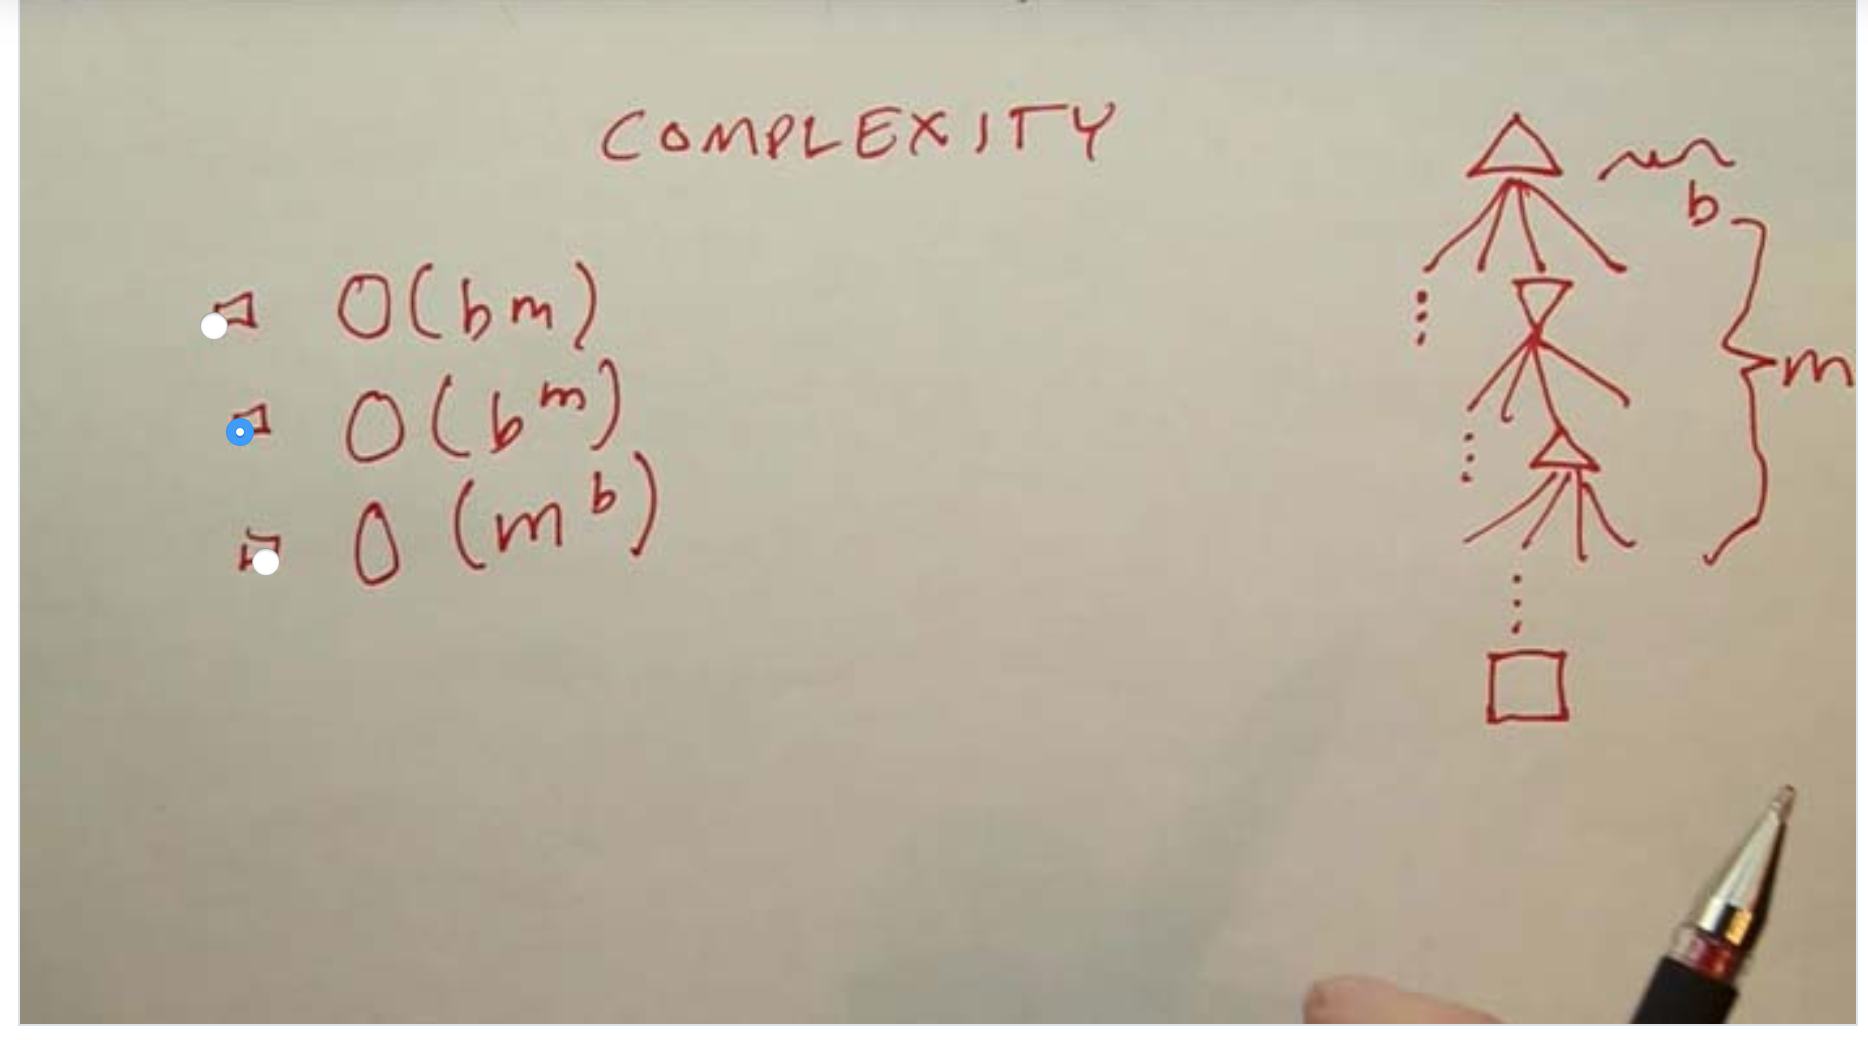 COMPLEXITY
b
O(bm)
m
O(b^m)
O(m^b)